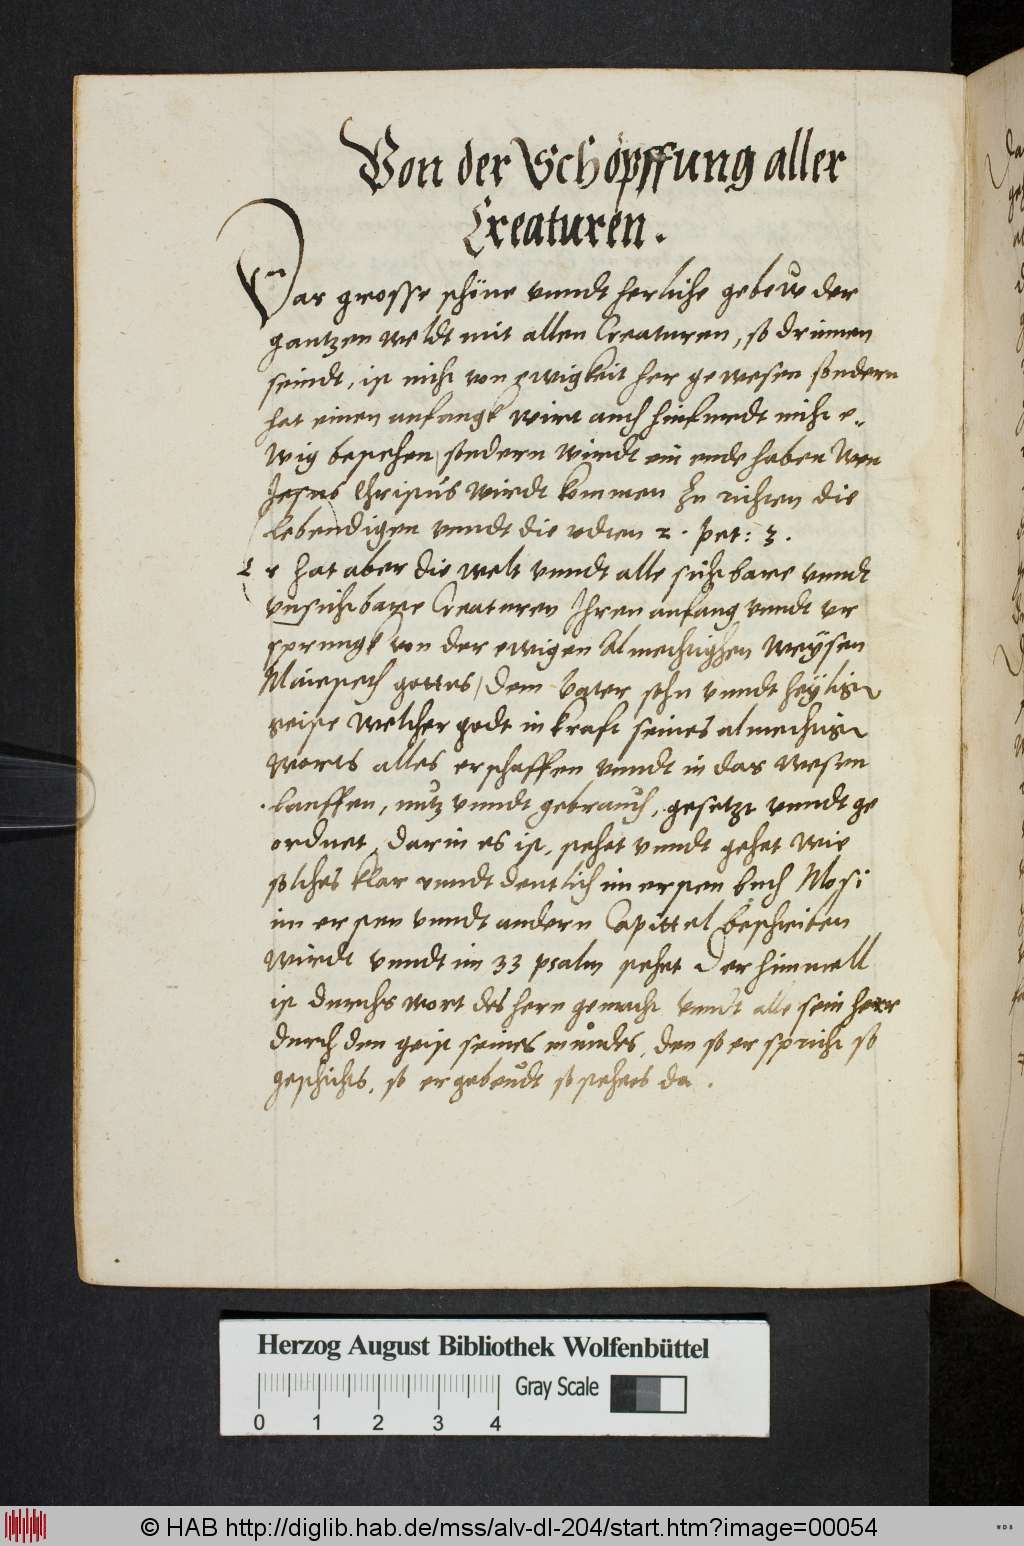 Von der Schöpffung aller
Creaturen.
Das grosse schöne vnndt herliche gebew der
gantzen weldt mit allen Creaturen, so drinnen
seindt, ist nicht von ewigkeit her gewesen sondern
hat einen anfangk wirt auch hinfurdt nicht e„
wig bestehen, sondern wirdt ein ende haben Wen
Jesus Christus wirdt kommen zu richten die
lebendigen vnndt die 2. Pet: 3.
Es hat aber die welt vnndt alle sichtbare vnndt
vnsichtbare Creaturen Ihren anfang vnndt vr
sprungk von der ewigen Almechtighen Weysen
Maiesteth gottes, dem Vater sohn vnndt heylig
geiste Welcher godt in kraft seines almechtig
Worts alles erschaffen vnndt in das Wesen
lauffen, nutz vnndt gebrauch, gesetzt vnndt ge
ordnet, darin es ist, stehet vnndt gehet Wie
solches klar vnndt deutlich im ersten buch Mosi
im ersten vnndt andern Capittel beschriben
Wirdt vnndt im 33 psalm stehet Der himmell
ist durchs wort des hern gemacht vnndt alle sein heer
durch den geist seines mundes, den so er spricht so
geschichts, so er gebeudt so stehets da.
Herzog August Bibliothek Wolfenbüttel
Gray Scale
0 1 2 3 4
© HAB http://diglib.hab.de/mss/alv-dl-204/start.htm?image=00054